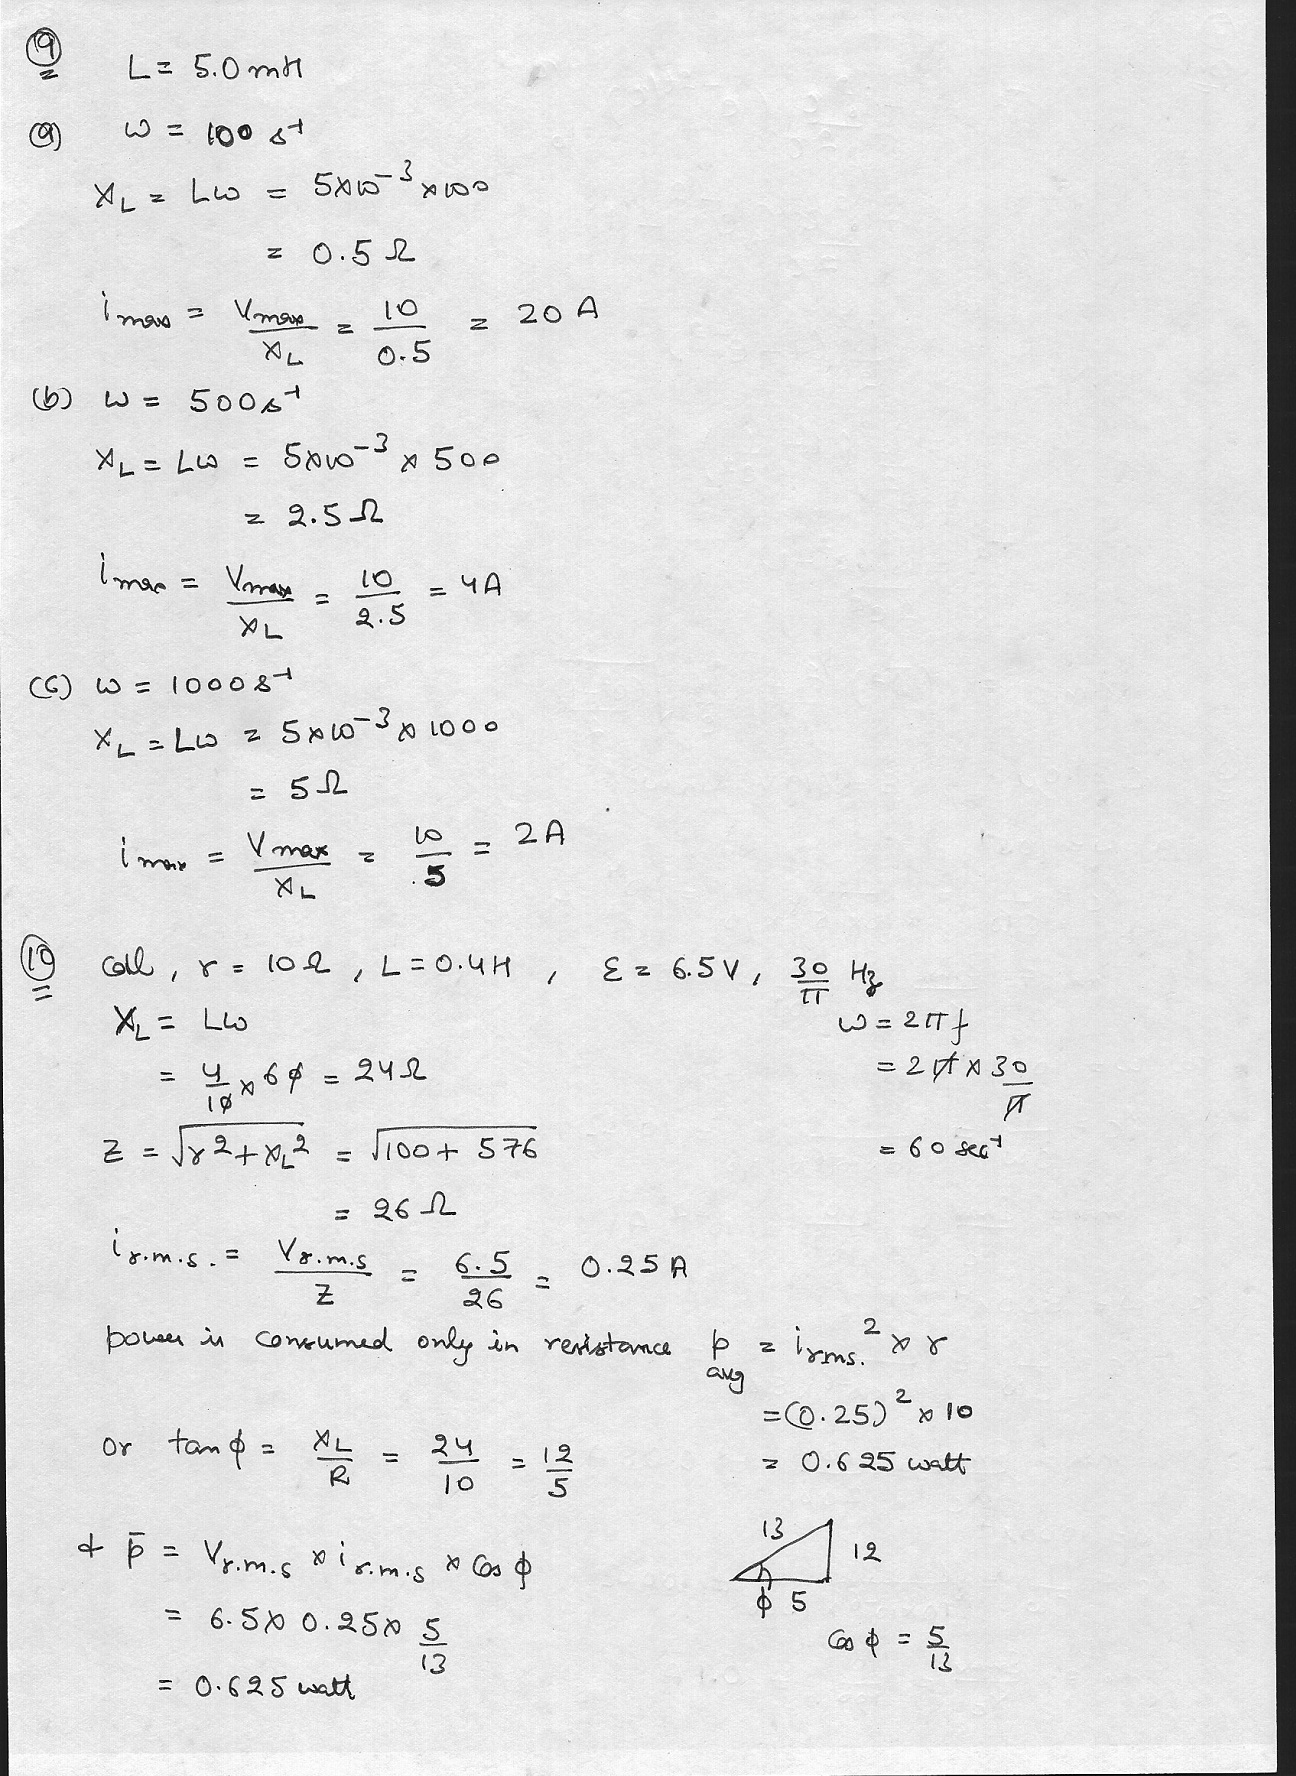 9
L = 5.0 mH
(a) ω = 100 s⁻¹
X_L = Lω = 5×10⁻³ × 100
= 0.5 Ω
i max = V max / X_L = 10 / 0.5 = 20 A
(b) ω = 500 s⁻¹
X_L = Lω = 5×10⁻³ × 500
= 2.5 Ω
i max = V max / X_L = 10 / 2.5 = 4A
(c) ω = 1000 s⁻¹
X_L = Lω = 5×10⁻³ × 1000
= 5 Ω
i max = V max / X_L = 10 / 5 = 2A
10 coil, r = 10 Ω, L = 0.4H, ε = 6.5V, 30/π Hz
X_L = Lω
= 4/10 × 60 = 24 Ω
Z = √(r² + X_L²) = √(100 + 576)
= 26 Ω
ω = 2πf
= 2π × 30/π
= 60 sec⁻¹
i r.m.s. = V r.m.s / Z = 6.5 / 26 = 0.25 A
power is consumed only in resistance p avg = i rms.² × r
= (0.25)² × 10
= 0.625 watt
or tan ϕ = X_L / R = 24 / 10 = 12 / 5
& p̄ = V r.m.s × i r.m.s × cos ϕ
= 6.5 × 0.25 × 5/13
= 0.625 watt
13
12
ϕ 5
cos ϕ = 5/13